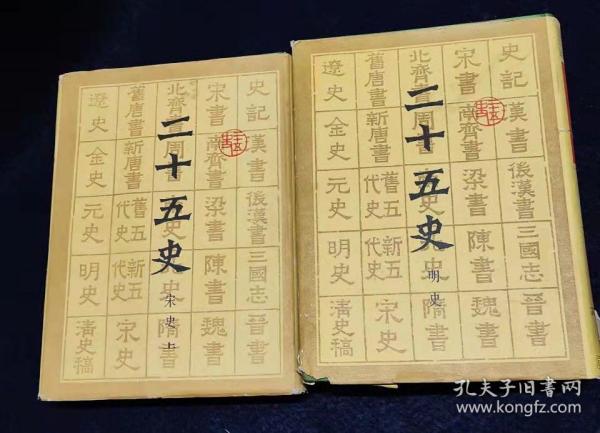 二十五史
宋史上
史記 漢書 後漢書 三國志 晉書
宋書 南齊書 梁書 陳書 魏書
北齊書 周書 史 史 隋書
舊唐書 新唐書 舊五代史 新五代史 宋史
遼史 金史 元史 明史 清史稿
二十五史
明史
史記 漢書 後漢書 三國志 晉書
宋書 南齊書 梁書 陳書 魏書
北齊書 周書 史 史 隋書
舊唐書 新唐書 舊五代史 新五代史 宋史
遼史 金史 元史 明史 清史稿
孔夫子旧书网
www.kongfz.com